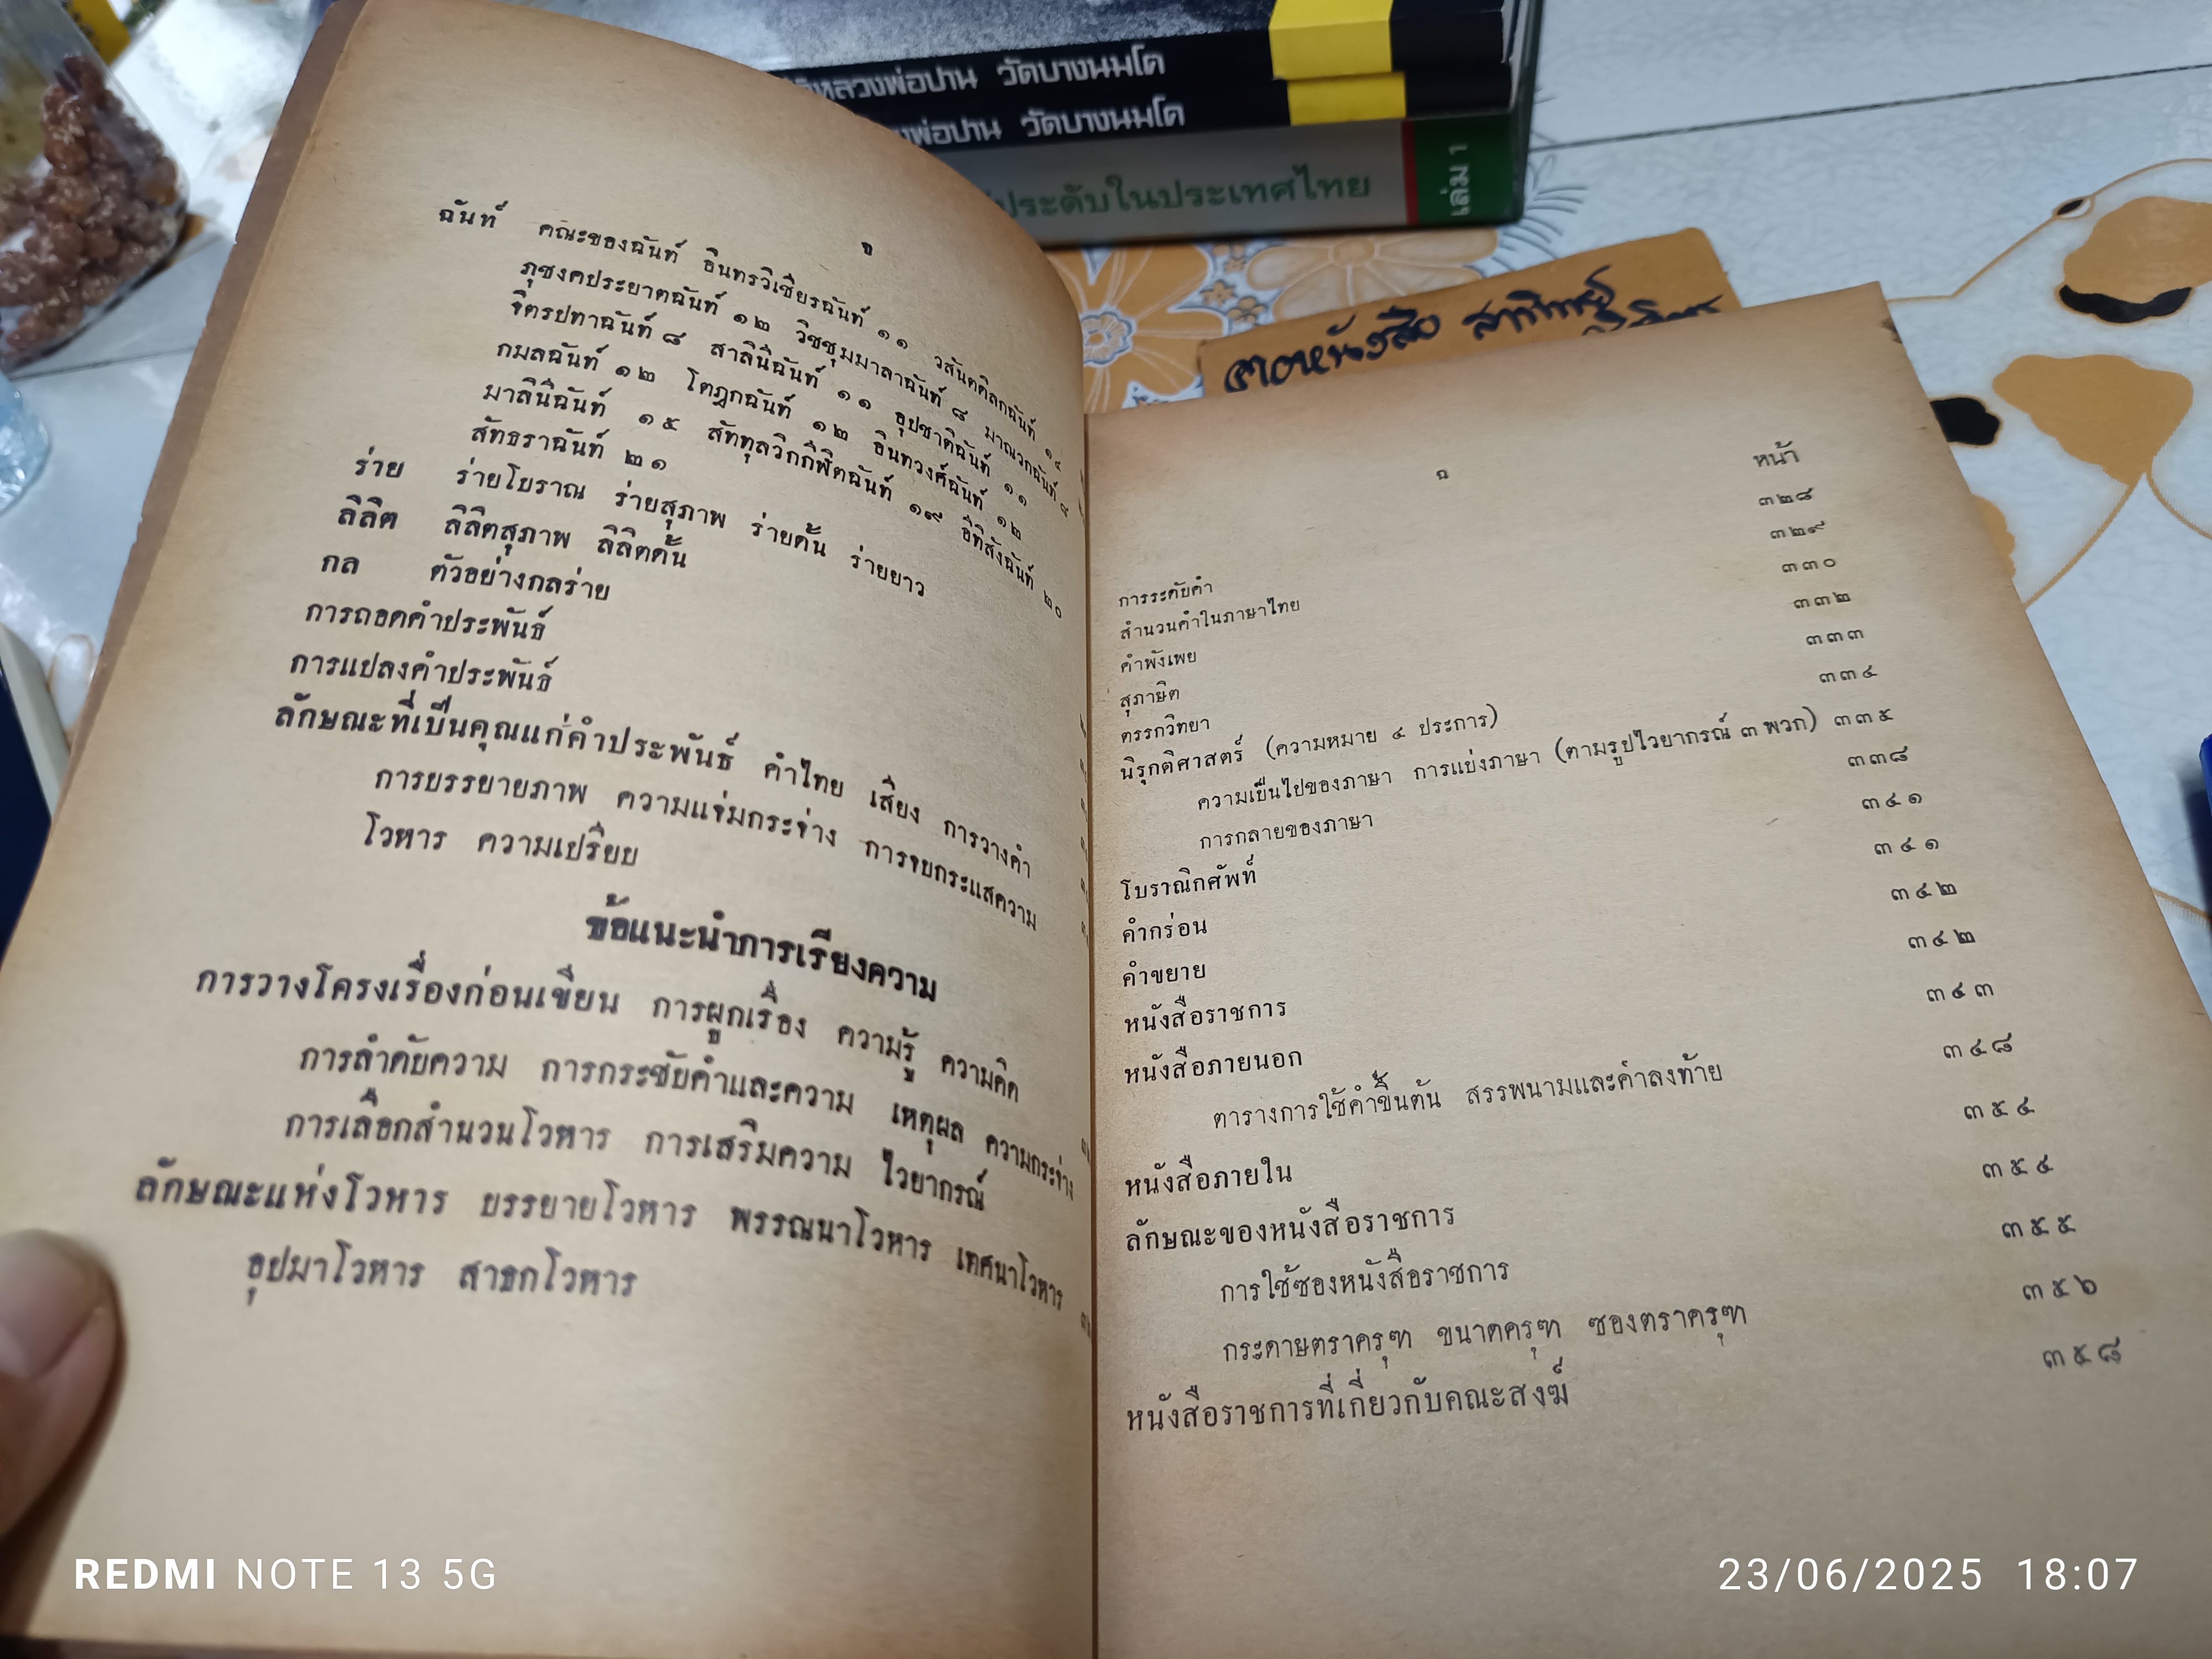 หลวงพ่อปาน วัดบางนมโค
พ่อปาน วัดบางนมโค
ประดับในประเทศไทย เล่ม 1
ฉันท์ คณะของฉันท์ อินทรวิเชียรฉันท์ ๑๑ วสันตดิลกฉันท์ ๑๔
ภุชงคประยาตฉันท์ ๑๒ วิชชุมมาลาฉันท์ ๘ มาณวกฉันท์ ๘
จิตรปทาฉันท์ ๘ สาลินีฉันท์ ๑๑ อุปชาติฉันท์ ๑๑
กมลฉันท์ ๑๒ โตฎกฉันท์ ๑๒ อินทวงศ์ฉันท์ ๑๒
มาลินีฉันท์ ๑๕ สัททุลวิกกีฬิตฉันท์ ๑๙ อีทิสังฉันท์ ๒๐
สัทธราฉันท์ ๒๑
ร่าย ร่ายโบราณ ร่ายสุภาพ ร่ายดั้น ร่ายยาว
ลิลิต ลิลิตสุภาพ ลิลิตดั้น
กล ตัวอย่างกลร่าย
การถอดคำประพันธ์
การแปลงคำประพันธ์
ลักษณะที่เป็นคุณแก่คำประพันธ์ คำไทย เสียง การวางคำ
การบรรยายภาพ ความแจ่มกระจ่าง การจบกระแสความ
โวหาร ความเปรียบ
ข้อแนะนำการเรียงความ
การวางโครงเรื่องก่อนเขียน การผูกเรื่อง ความรู้ ความคิด
การลำดับความ การกระชับคำและความ เหตุผล ความกระจ่าง
การเลือกสำนวนโวหาร การเสริมความ ไวยากรณ์
ลักษณะแห่งโวหาร บรรยายโวหาร พรรณนาโวหาร เทศนาโวหาร
อุปมาโวหาร สาธกโวหาร
หน้า
การระดับคำ ๓๒๘
สำนวนคำในภาษาไทย ๓๒๙
คำพังเพย ๓๓๐
สุภาษิต ๓๓๒
ตรรกวิทยา ๓๓๓
นิรุกติศาสตร์ (ความหมาย ๔ ประการ) ๓๓๔
ความเป็นไปของภาษา การแบ่งภาษา (ตามรูปไวยากรณ์ ๓ พวก) ๓๓๕
การกลายของภาษา ๓๓๘
โบราณิกศัพท์ ๓๔๑
คำกร่อน ๓๔๑
คำขยาย ๓๔๒
หนังสือราชการ ๓๔๒
หนังสือภายนอก ๓๔๓
ตารางการใช้คำขึ้นต้น สรรพนามและคำลงท้าย ๓๔๘
หนังสือภายใน ๓๕๔
ลักษณะของหนังสือราชการ ๓๕๔
การใช้ซองหนังสือราชการ ๓๕๕
กระดาษตราครุฑ ขนาดครุฑ ซองตราครุฑ ๓๕๖
หนังสือราชการที่เกี่ยวกับคณะสงฆ์ ๓๕๘
REDMI NOTE 13 5G
23/06/2025 18:07